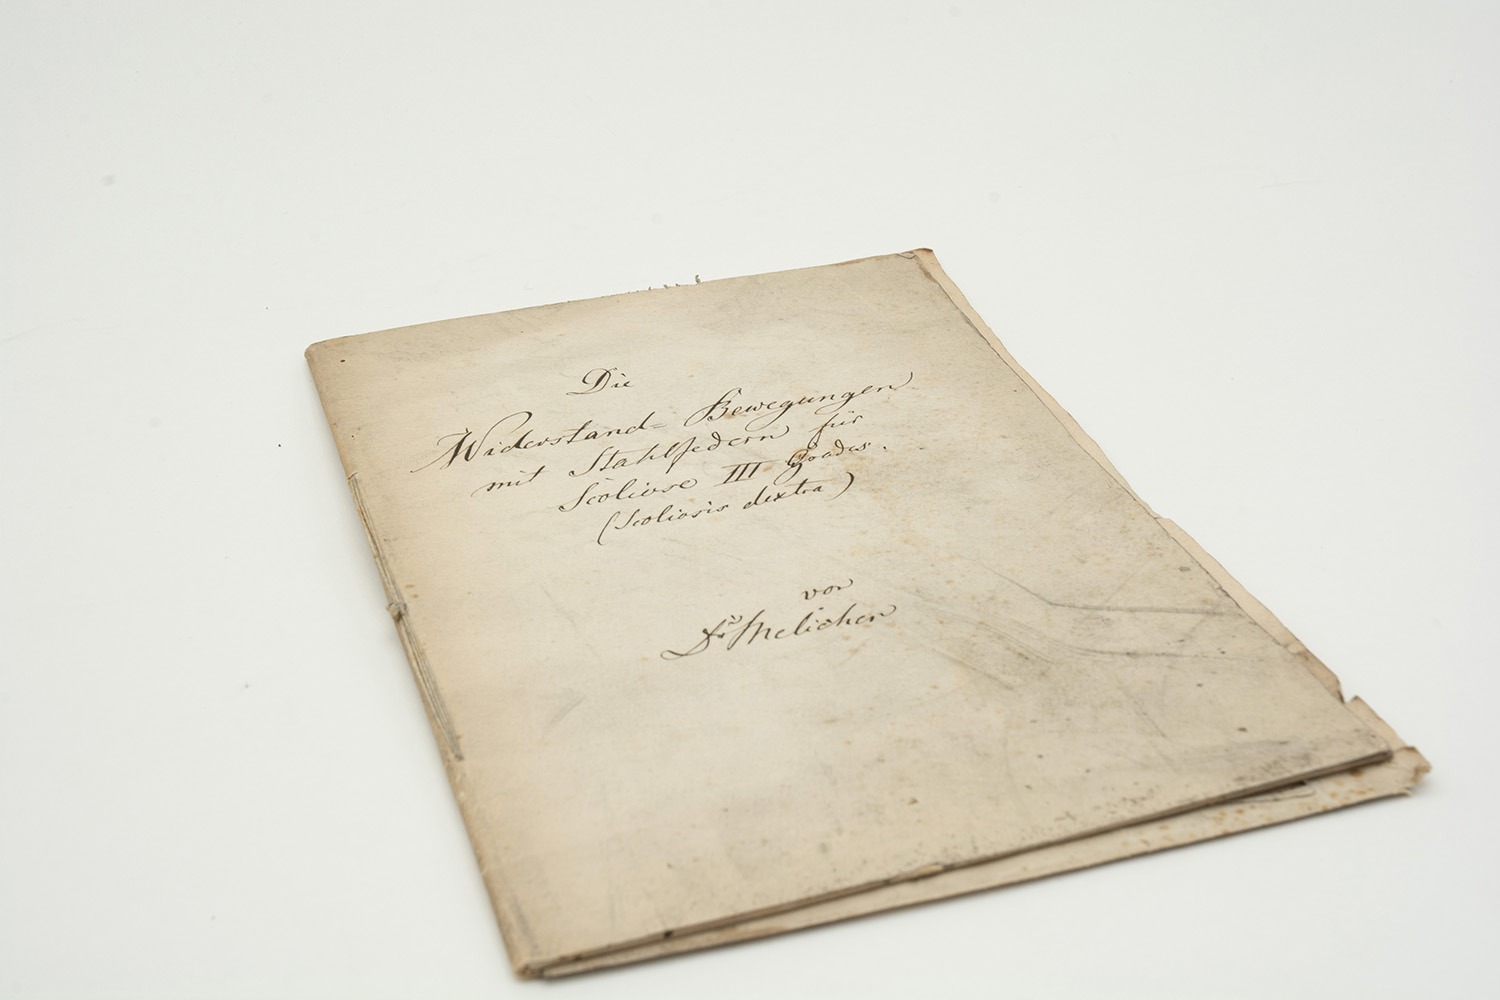 Die
Widerstand- Bewegungen
mit Stahlfedern für
Scoliose III Grades.
(Scoliosis dextra)
von
Dr. Melicher